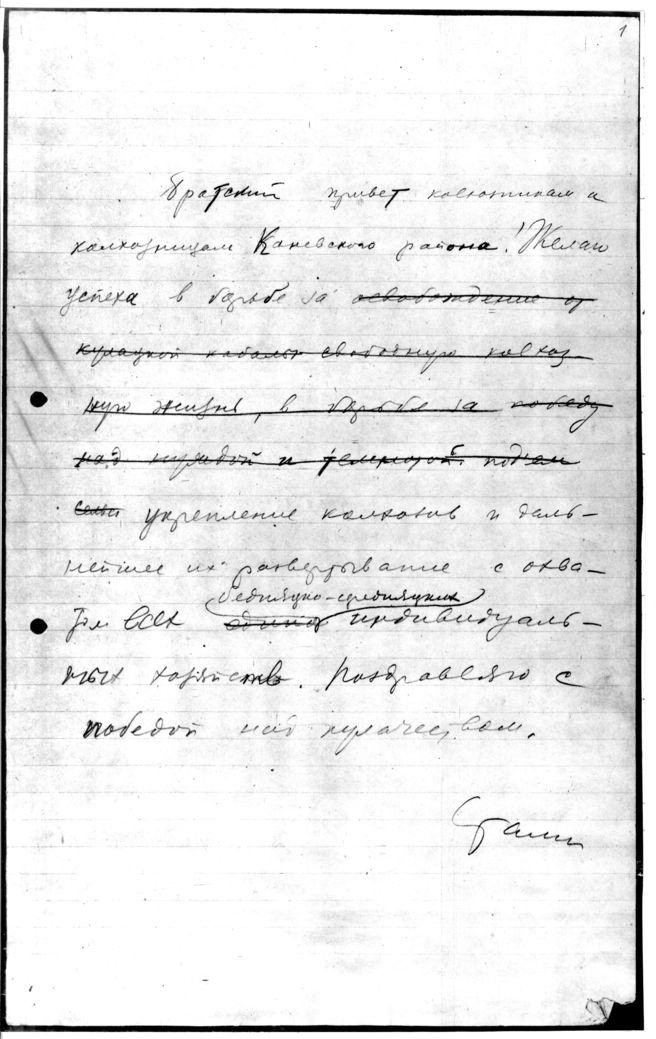 1
Братский привет колхозникам и
колхозницам Каневского района! Желаю
успеха в борьбе за освобождение от
кулацкой кабалы свободную колхоз-
ную жизнь, в борьбе за победу
над нуждой и темнотой. под'ем
укрепление колхозов и даль-
нейшее их развертывание с охва-
бедняцко-середняцких
том всех индивидуаль-
ных хозяйств. Поздравляю с
победой над кулачеством.
Сталин